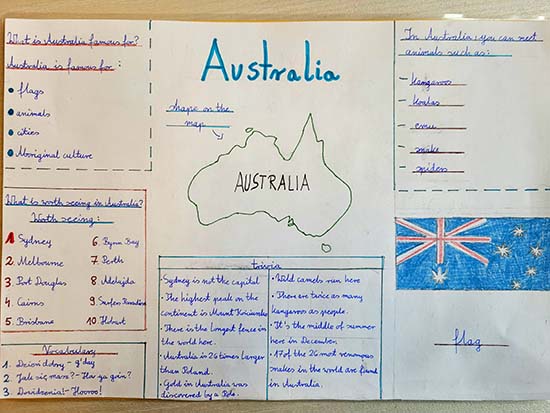 What is Australia famous for?
Australia is famous for:
flags
animals
cities
Aboriginal culture
Australia
shape on the
map
AUSTRALIA
In Australia, you can meet
animals such as:
- kangaroos
- koalas
- emu
- snake
- spiders
What is worth seeing in Australia?
Worth seeing:
1 Sydney
2 Melbourne
3 Port Douglas
4 Cairns
5 Brisbane
6. Byron Bay
7 Perth
8 Adelajda
9 Surfers Paradise
10 Hobart
Vocabulary
1. Dzień dobry - g'day
2. Jak się masz? - How ya goin?
3. Dowidzenia! - Hooroo!
trivia
• Sydney is not the capital
• The highest peak on the
continent is Mount Kościuszko
• There is the longest fence in
the world here.
• Australia is 26 times larger
than Poland.
• Gold in Australia was
discovered by a Pole.
• Wild camels run here
• There are twice as many
kangaroos as people.
• It's the middle of summer
here in December.
• 17 of the 26 most venomous
snakes in the world are found
in Australia.
flag